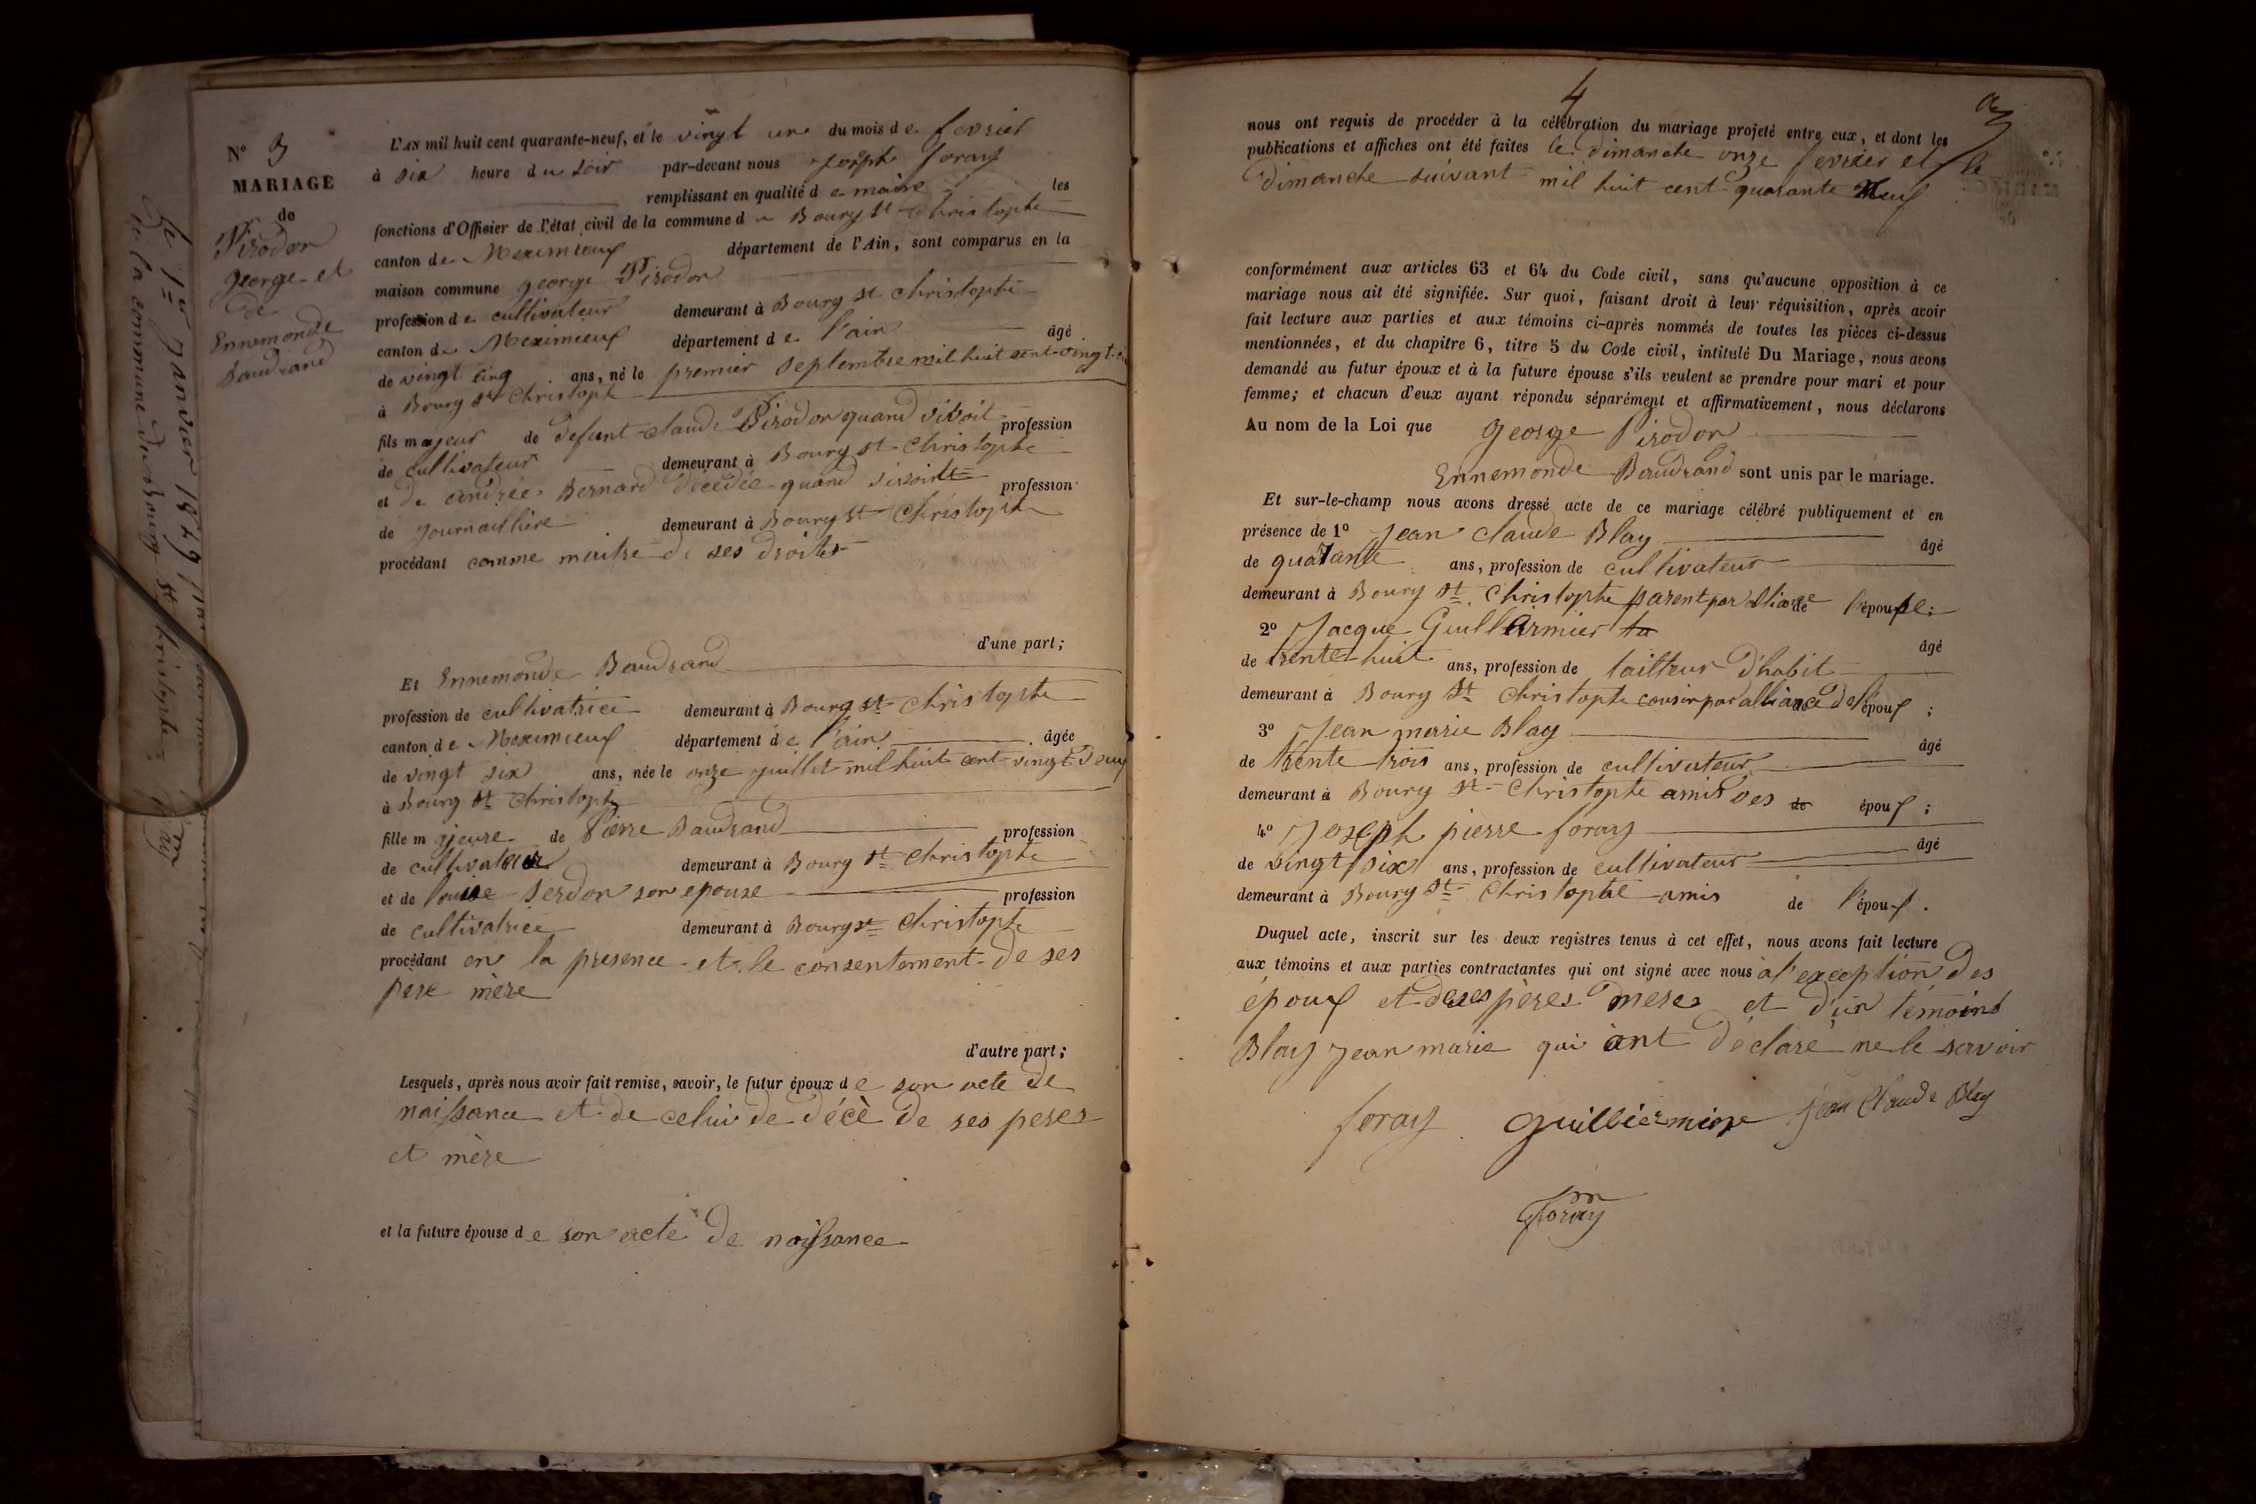 N° 3
MARIAGE
de
Pirodon
george et
de
Ennemonde
Baudrand
L'AN mil huit cent quarante-neuf, et le vingt un du mois de fevrier
à six heure du soir par-devant nous joseph foray
remplissant en qualité de maire les
fonctions d'Officier de l'état civil de la commune de Bourg St Christophe
canton de Meximieux département de l'Ain, sont comparus en la
maison commune george Pirodon
profession de cultivateur demeurant à Bourg St Christophe
canton de Meximieux département de l'ain âgé
de vingt cinq ans, né le premier septembre mil huit cent vingt
à Bourg St Christophe
fils majeur de defunt claude Pirodon quand vivoit profession
de cultivateur demeurant à Bourg St Christophe
et de andrée Bernard décedée quand profession
de journailliere demeurant à Bourg St Christophe
procédant comme maitre de ses droits
d'une part;
Et Ennemonde Baudrand
profession de cultivatrice demeurant à Bourg St Christophe
canton de Meximieux département de l'ain âgée
de vingt six ans, née le onze juillet mil huit cent vingt deux
à Bourg St Christophe
fille majeure de Pierre Baudrand profession
de cultivateur demeurant à Bourg St Christophe
et de louise serdon son epouse profession
de cultivatrice demeurant à Bourg St Christophe
procédant en la presence et le consentement de ses
père mère
d'autre part;
Lesquels, après nous avoir fait remise, savoir, le futur époux de son acte de
naissance et de celui de décè de ses peres
et mère
et la future épouse de son acte de naissance
4
3
nous ont requis de procéder à la célébration du mariage projeté entre eux, et dont les
publications et affiches ont été faites le dimanche onze fevrier et le
dimanche suivant mil huit cent quarante neuf
conformément aux articles 63 et 64 du Code civil, sans qu'aucune opposition à ce
mariage nous ait été signifiée. Sur quoi, faisant droit à leur réquisition, après avoir
fait lecture aux parties et aux témoins ci-après nommés de toutes les pièces ci-dessus
mentionnées, et du chapitre 6, titre 5 du Code civil, intitulé Du Mariage, nous avons
demandé au futur époux et à la future épouse s'ils veulent se prendre pour mari et pour
femme; et chacun d'eux ayant répondu séparément et affirmativement, nous déclarons
Au nom de la Loi que george Pirodon
Ennemonde Baudrand sont unis par le mariage.
Et sur-le-champ nous avons dressé acte de ce mariage célébré publiquement et en
présence de 1° Jean claude Blay âgé
de quarante ans, profession de cultivateur
demeurant à Bourg St Christophe parent par aliance de l'épouse;
2° Jacque Guillermier âgé
de trente huit ans, profession de tailleur d'habit
demeurant à Bourg St Christophe cousin par alliance de l'époux;
3° Jean marie Blay âgé
de trente trois ans, profession de cultivateur
demeurant à Bourg St Christophe amis des époux;
4° Joseph pierre foray âgé
de vingt six ans, profession de cultivateur
demeurant à Bourg St Christophe amis de l'époux.
Duquel acte, inscrit sur les deux registres tenus à cet effet, nous avons fait lecture
aux témoins et aux parties contractantes qui ont signé avec nous à l'exception des
époux et de ses pères mères et d'un témoins
Blay Jean marie qui ont déclaré ne le savoir
foray Guilliermier jean Claude Blay
foray